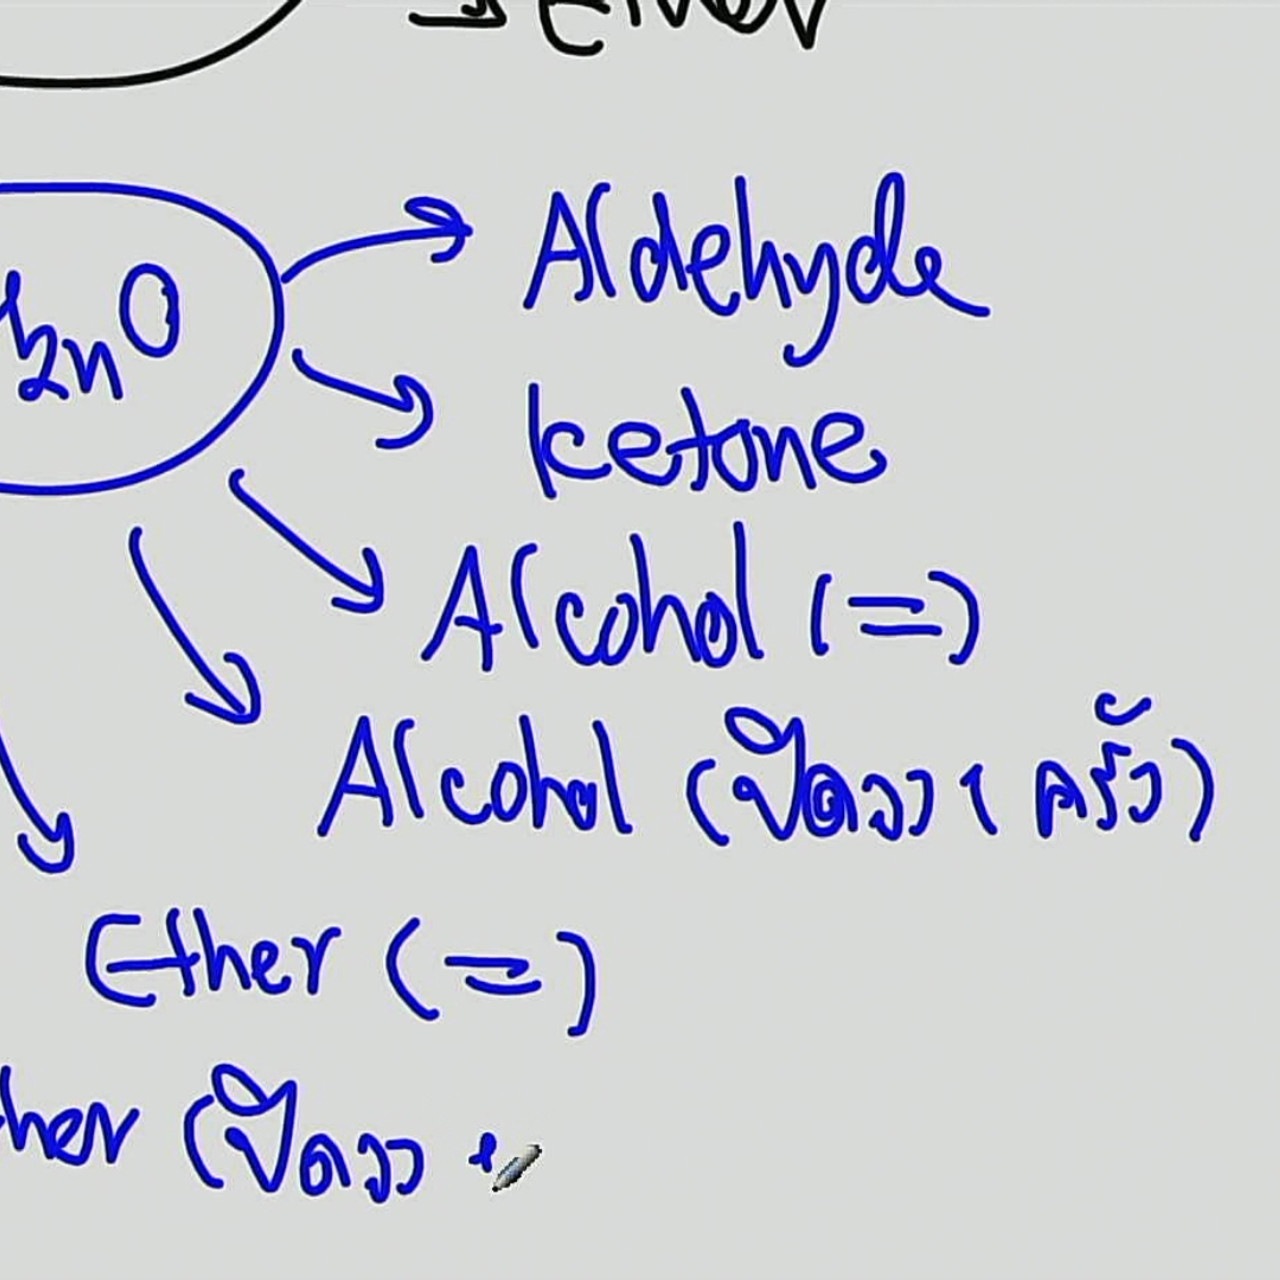 Ether
H2nO
Aldehyde
ketone
Alcohol (=)
Alcohol (ปิดวง 1 ครั้ง)
Ether (=)
her (ปิดวง